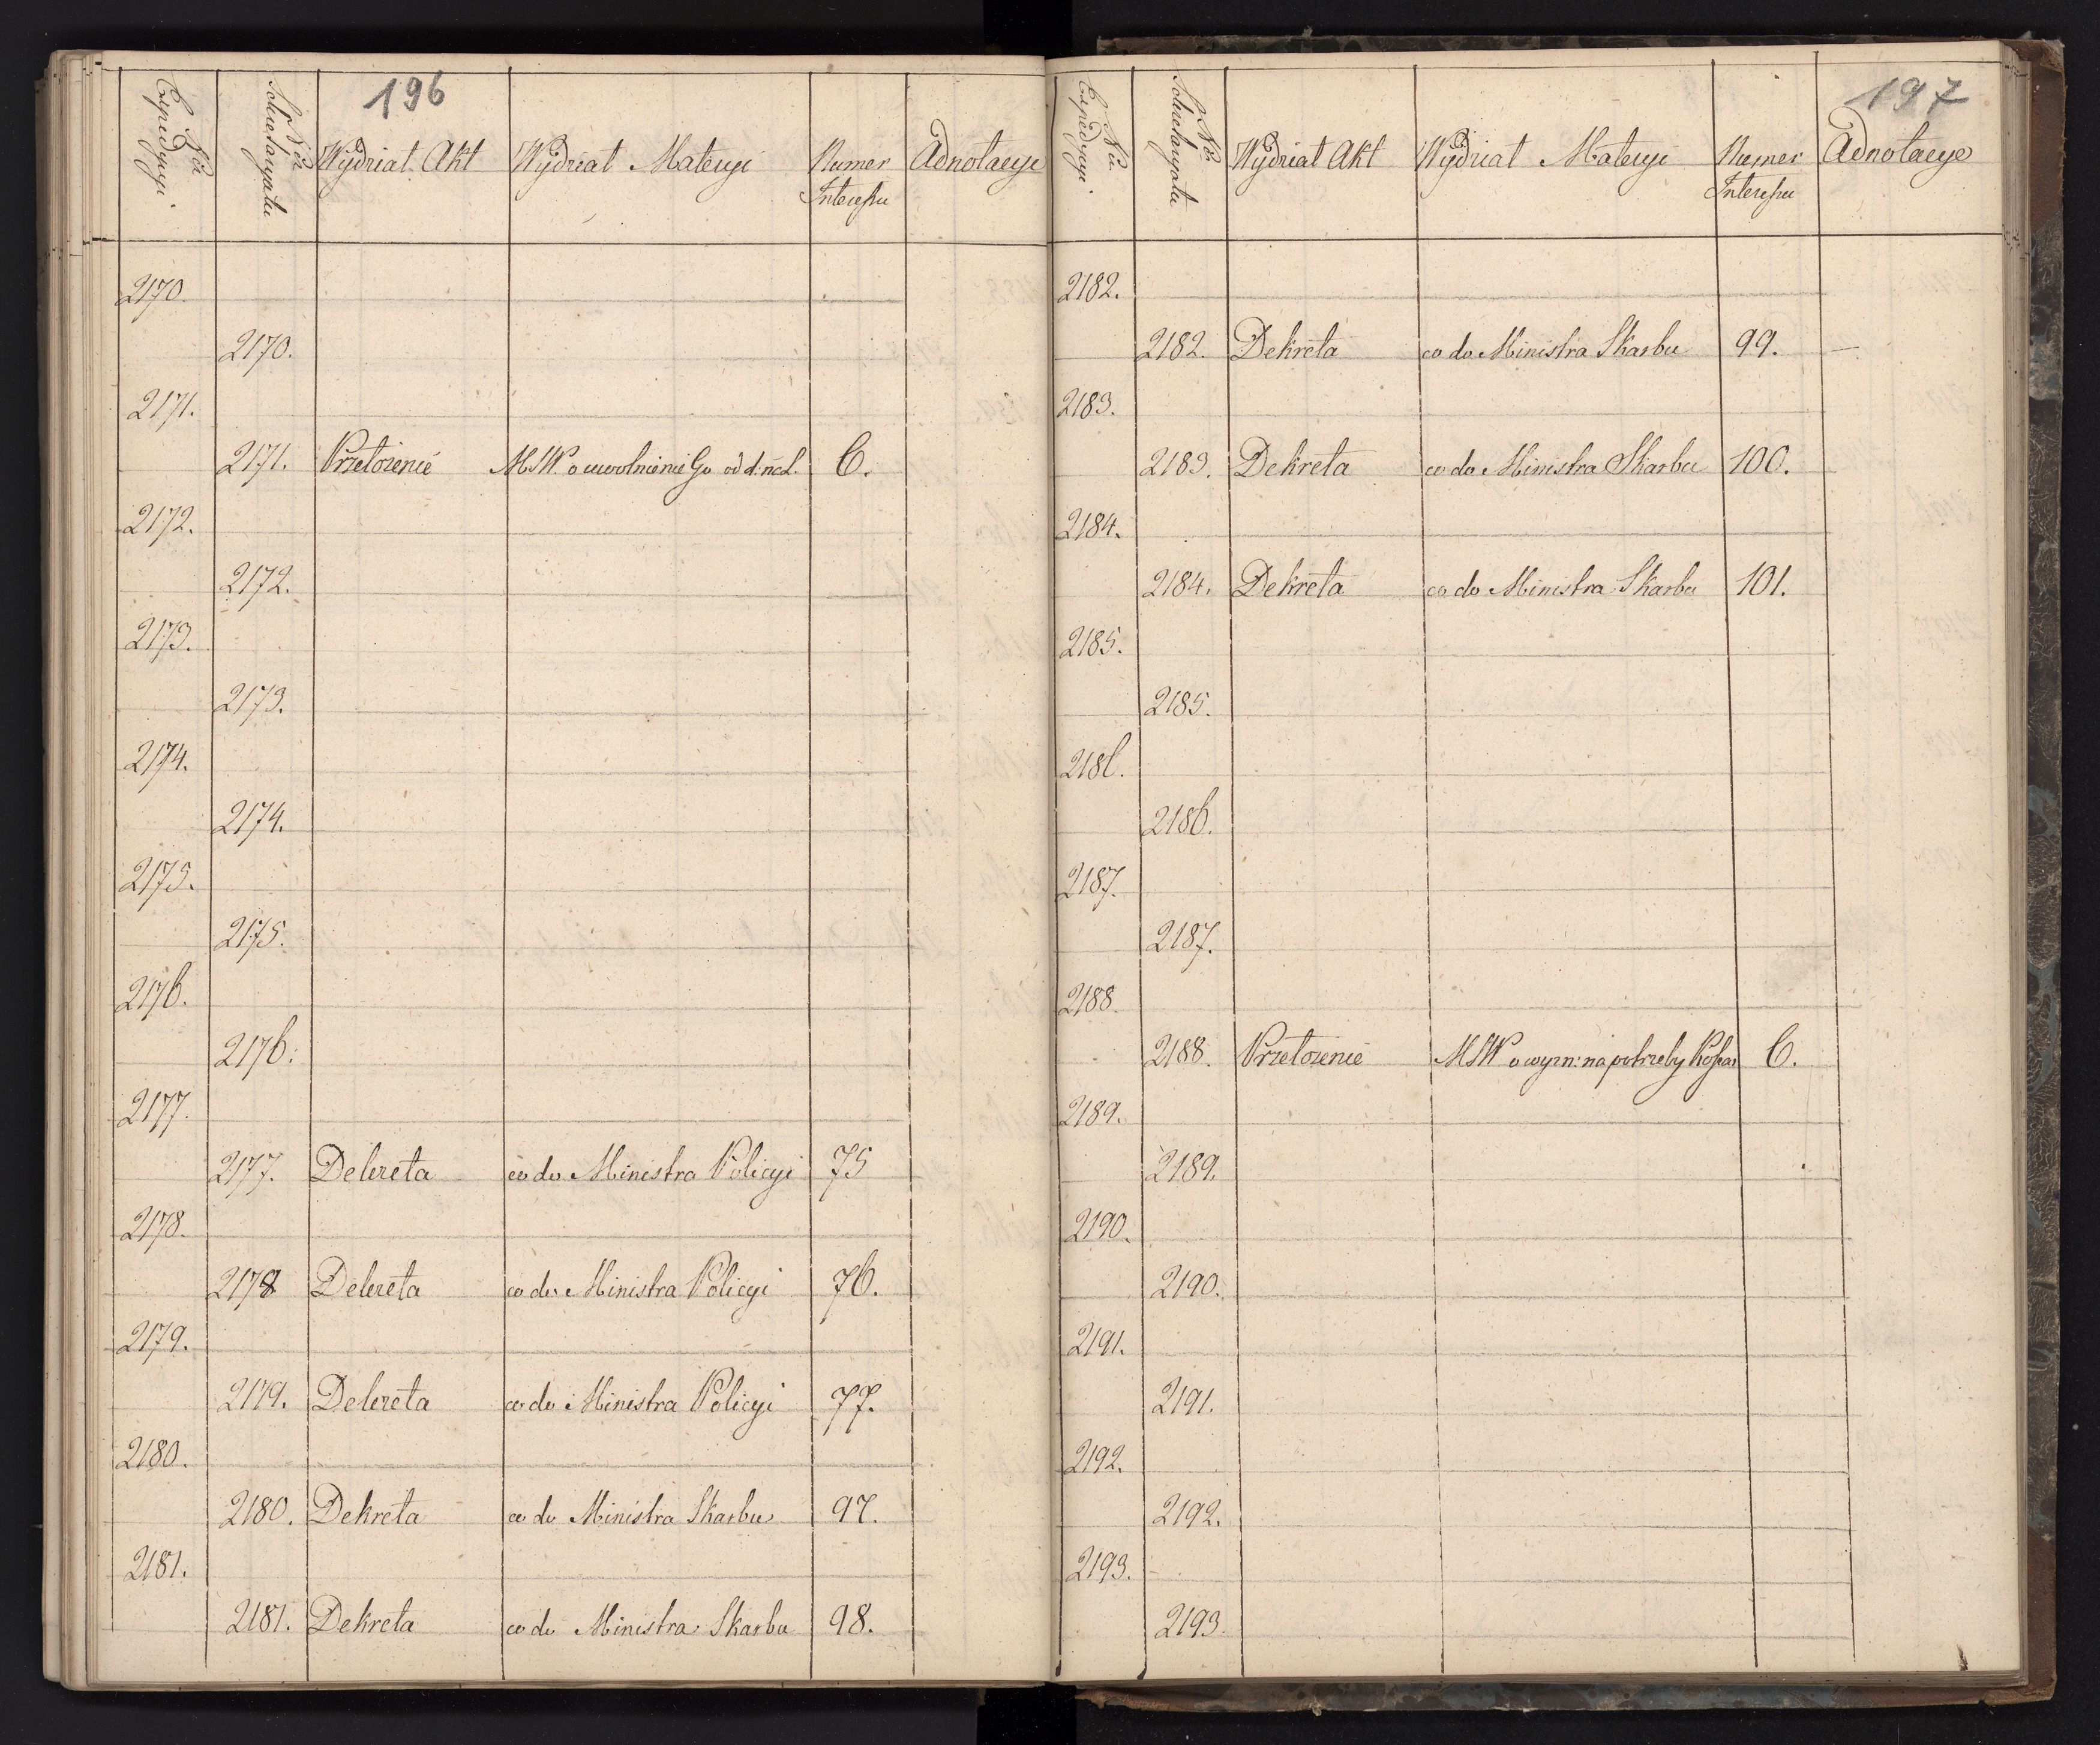 196
Nro Expedycyi.
Nro Sekretaryatu
Wydział Akt
Wydział Materyi
Numer Interessu
Adnotacye
2170.
2170.
2171.
2171. Przełożenie MSW. o uwolnienie Go od d: ncd. 6.
2172.
2172.
2173.
2173.
2174.
2174.
2175.
2175.
2176.
2176.
2177.
2177. Dekreta co do Ministra Policyi 75
2178.
2178 Dekreta co do Ministra Policyi 76.
2179.
2179. Dekreta co do Ministra Policyi 77.
2180.
2180. Dekreta co do Ministra Skarbu 97.
2181.
2181. Dekreta co do Ministra Skarbu 98.
197
Nro Expedycyi.
Nro Sekretaryatu
Wydział Akt
Wydział Materyi
Numer Interessu
Adnotacye
2182.
2182. Dekreta co do Ministra Skarbu 99. —
2183.
2183. Dekreta co do Ministra Skarbu 100.
2184.
2184. Dekreta co do Ministra Skarbu 101.
2185.
2185.
2186.
2186.
2187.
2187.
2188
2188. Przełożenie MSW o wyzn: na potrzeby 6.
2189.
2189.
2190.
2190.
2191.
2191.
2192.
2192.
2193.
2193.